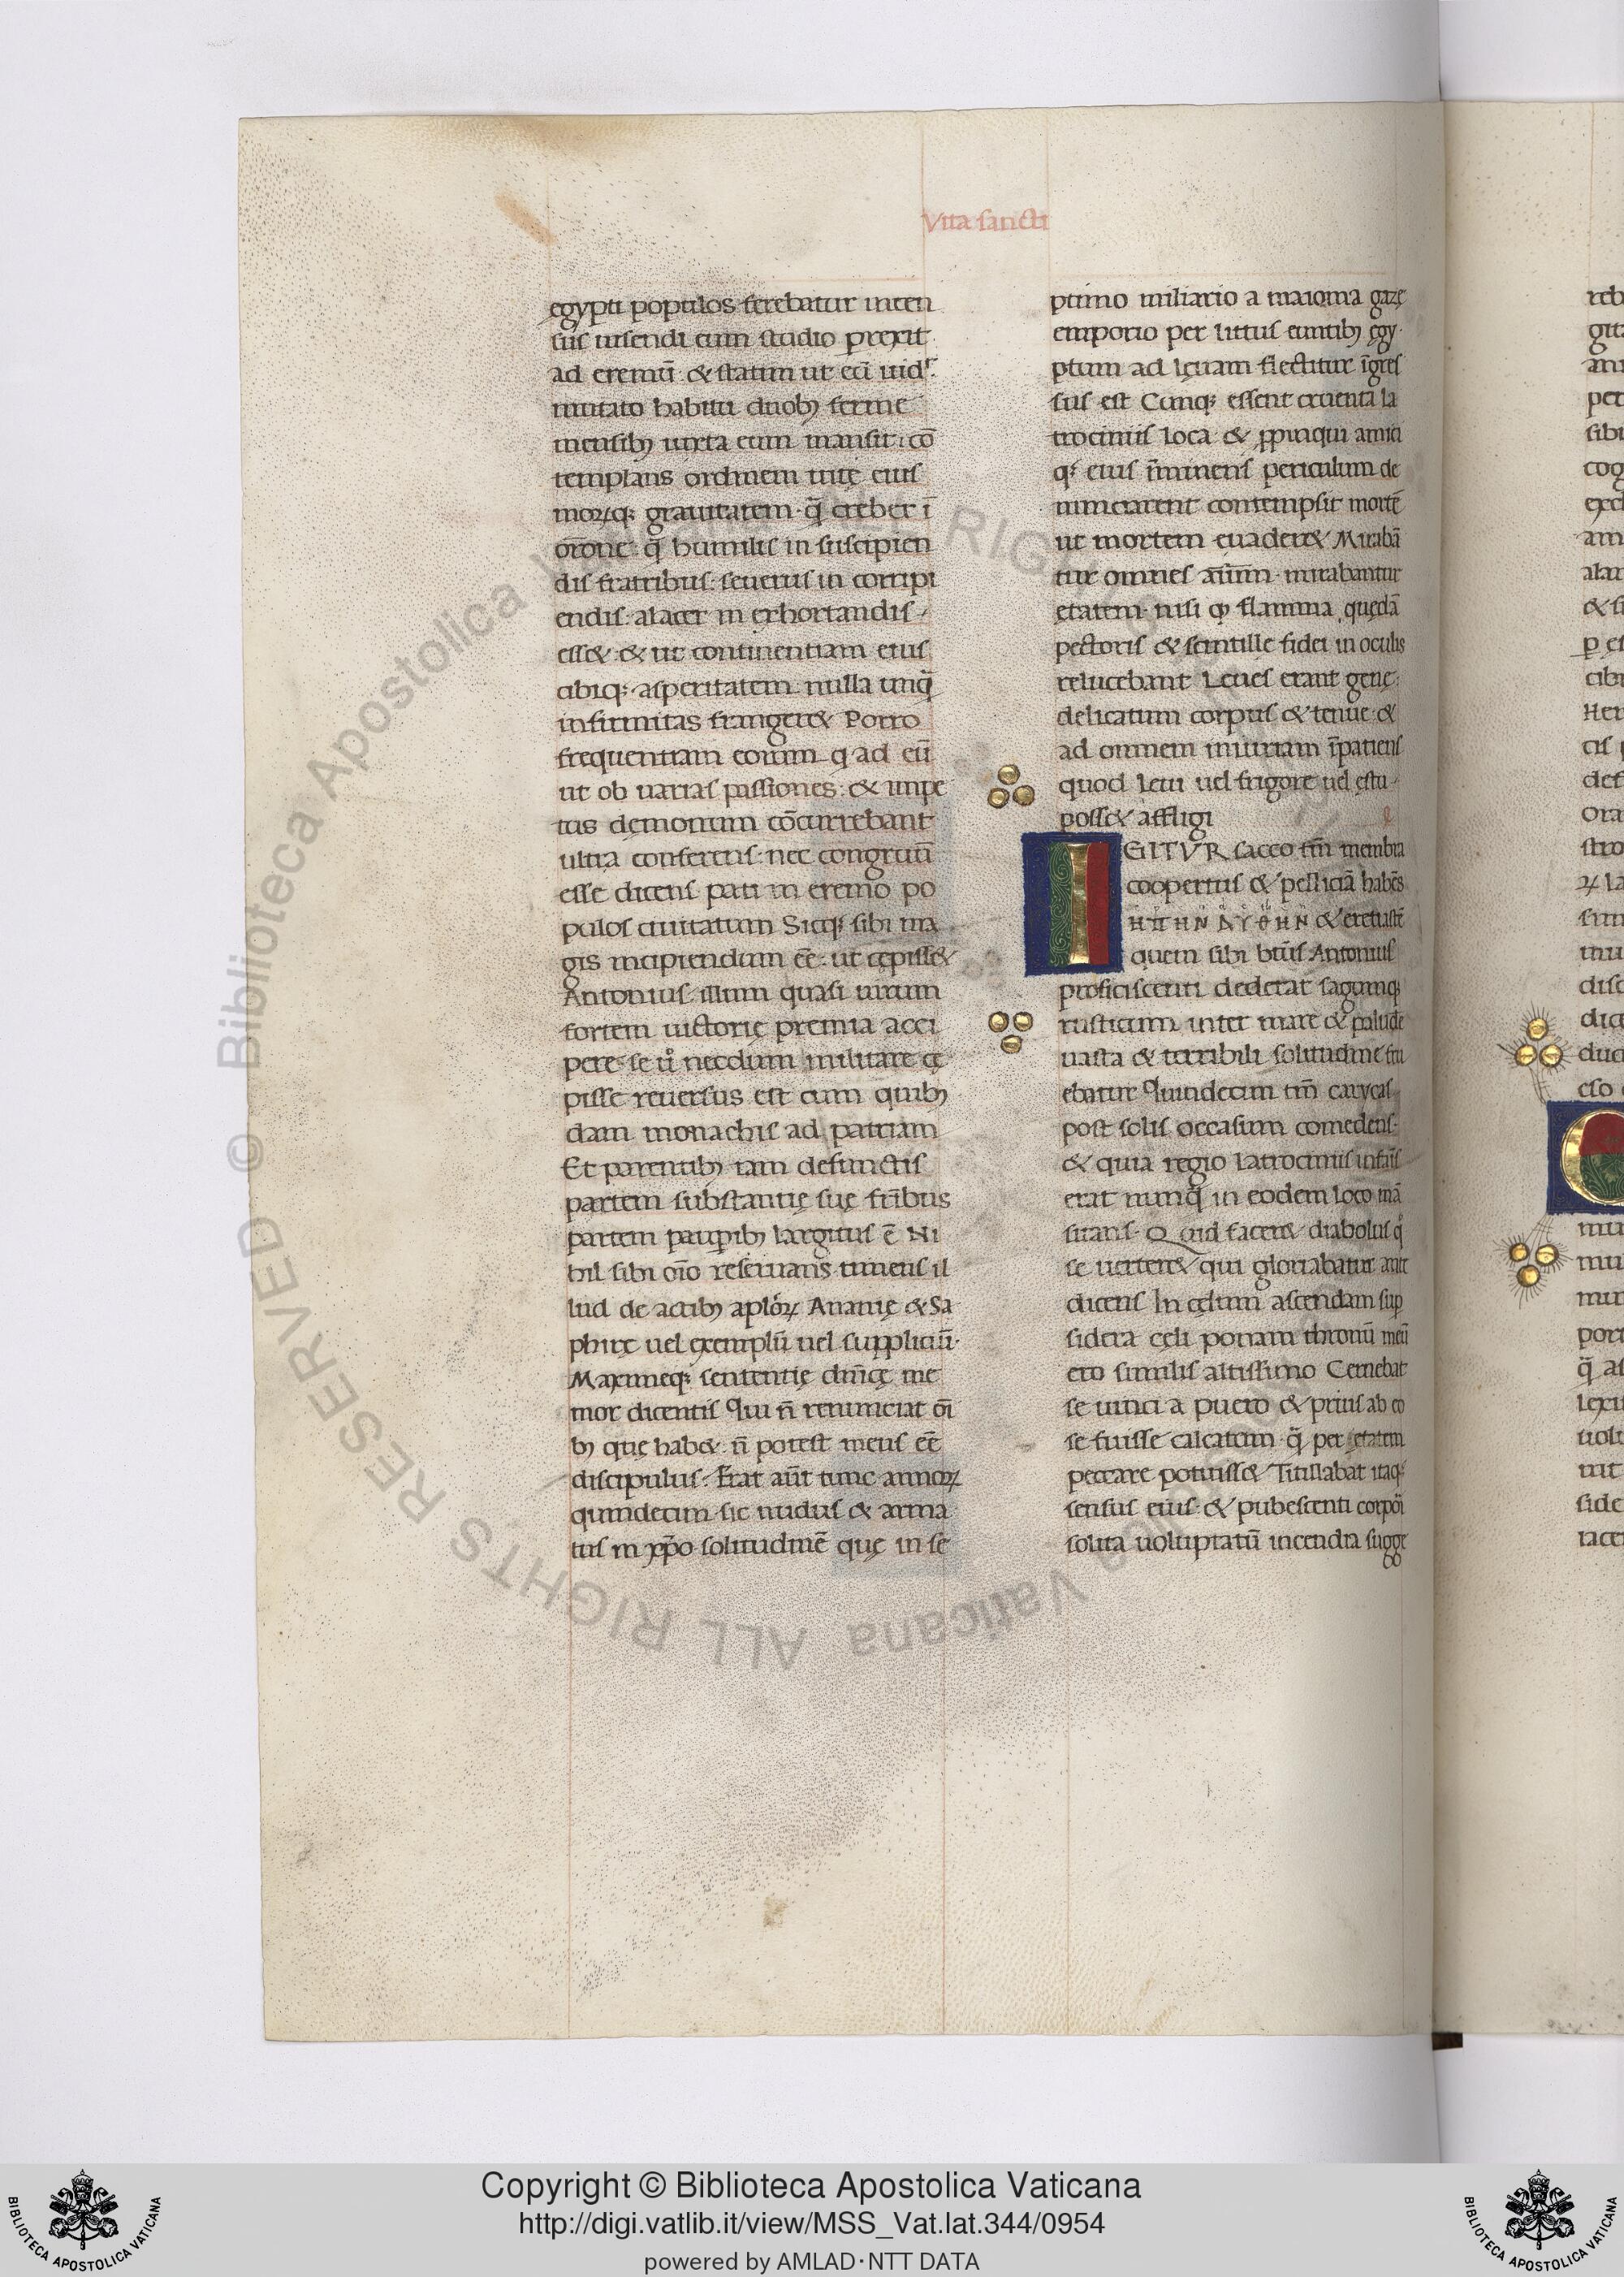 Vita sancti
egypti populos ferebatur incen
sus uisendi eum studio perrexit
ad eremū · & statim ut eū uid⁊
mutato habitu duobꝫ ferme
mensibꝫ iuxta eum mansit : cō
templans ordinem uitę eius
morꝫqꝫ grauitatem · q̄ creber ī
orōne : q̄ humilis in suscipien
dis fratribus : seuerus in corripi
endis : alacer in exhortandis
ess& : & ut continentiam eius
cibiqꝫ asperitatem nulla unq̄
infirmitas franger& Porro
frequentiam eorum q ad eū
ut ob uarias passiones : & impe
tus dęmonum cōcurrebant
ultra conferens · nec congruū
esse dicens pati in eremo po
pulos ciuitatum Sicqꝫ sibi ma
gis incipiendum ēē : ut cępiss&
Antonius · illum quasi uirum
fortem uictorię premia acci
pere · se u̾ necdum militare cę
pisse reuersus est cum quibꝫ
dam monachis ad patriam
Et parentibꝫ iam defunctis
partem substantię suę fr̄ibus
partem paup̱ibꝫ largitus ē Ni
hil sibi oīo reseruans timens il
lud de actibꝫ aplōꝝ Ananię & Sa
phirę uel exemplū uel suppliciū ·
Maximeqꝫ sententię dn̄icę me
mor dicentis Qui n̄ renunciat oī
bꝫ que hab& · n̄ potest meus ēē
discipulus · Erat aūt tunc annoꝝ
quindecim · sic nudus & arma
tus in xp̄o solitudinē quę in se
ptimo miliario a maioma gazę
emporio per littus euntibꝫ ęgy·
ptum ad lęuam flectitur īgres
sus est Cunqꝫ essent cruenta la
trociniis loca & ꝓpinqui amici
qꝫ eius īminens periculum de
nunciarent contempsit mortē
ut mortem euader& Mirabā
tur omnes aīum · mirabantur
ętatem · nisi qꝫ flamma quędā
pectoris & scintille fidei in oculis
relucebant Leues erant genę :
delicatum corpus & tenue · &
ad omnem iniuriam īpatiens
quod leui uel frigore uel ęstu
poss& affligi
IGITVR sacco tm̄ membra
coopertus & pelliciā habēs
quem sibi btūs Antonius
proficiscenti dederat sagumqꝫ
rusticum inter mare & paludē
uasta & terribili solitudine fru
ebatur Quindecim tm̄ carycas
post solis occasum comedens ·
& quia regio latrociniis infāis
erat nunq̄ in eodem loco mā
suans · Quid facer& diabolus q̊
se uerter& qui gloriabatur ante
dicens In cęlum ascendam sup̱
sidera cęli ponam thronū meū
ero similis altissimo Cernebat
se uinci a puero & prius ab eo
se fuisse calcatum · q̄ per ętatem
peccare potuiss& Titillabat itaqꝫ
sensus eius · & pubescenti corpoī
solita uoluptatū incendia sugge
Copyright © Biblioteca Apostolica Vaticana
http://digi.vatlib.it/view/MSS_Vat.lat.344/0954
powered by AMLAD·NTT DATA
BIBLIOTECA APOSTOLICA VATICANA
BIBLIOTECA APOSTOLICA VATICANA
© Biblioteca Apostolica Vaticana ALL RIGHTS RESERVED